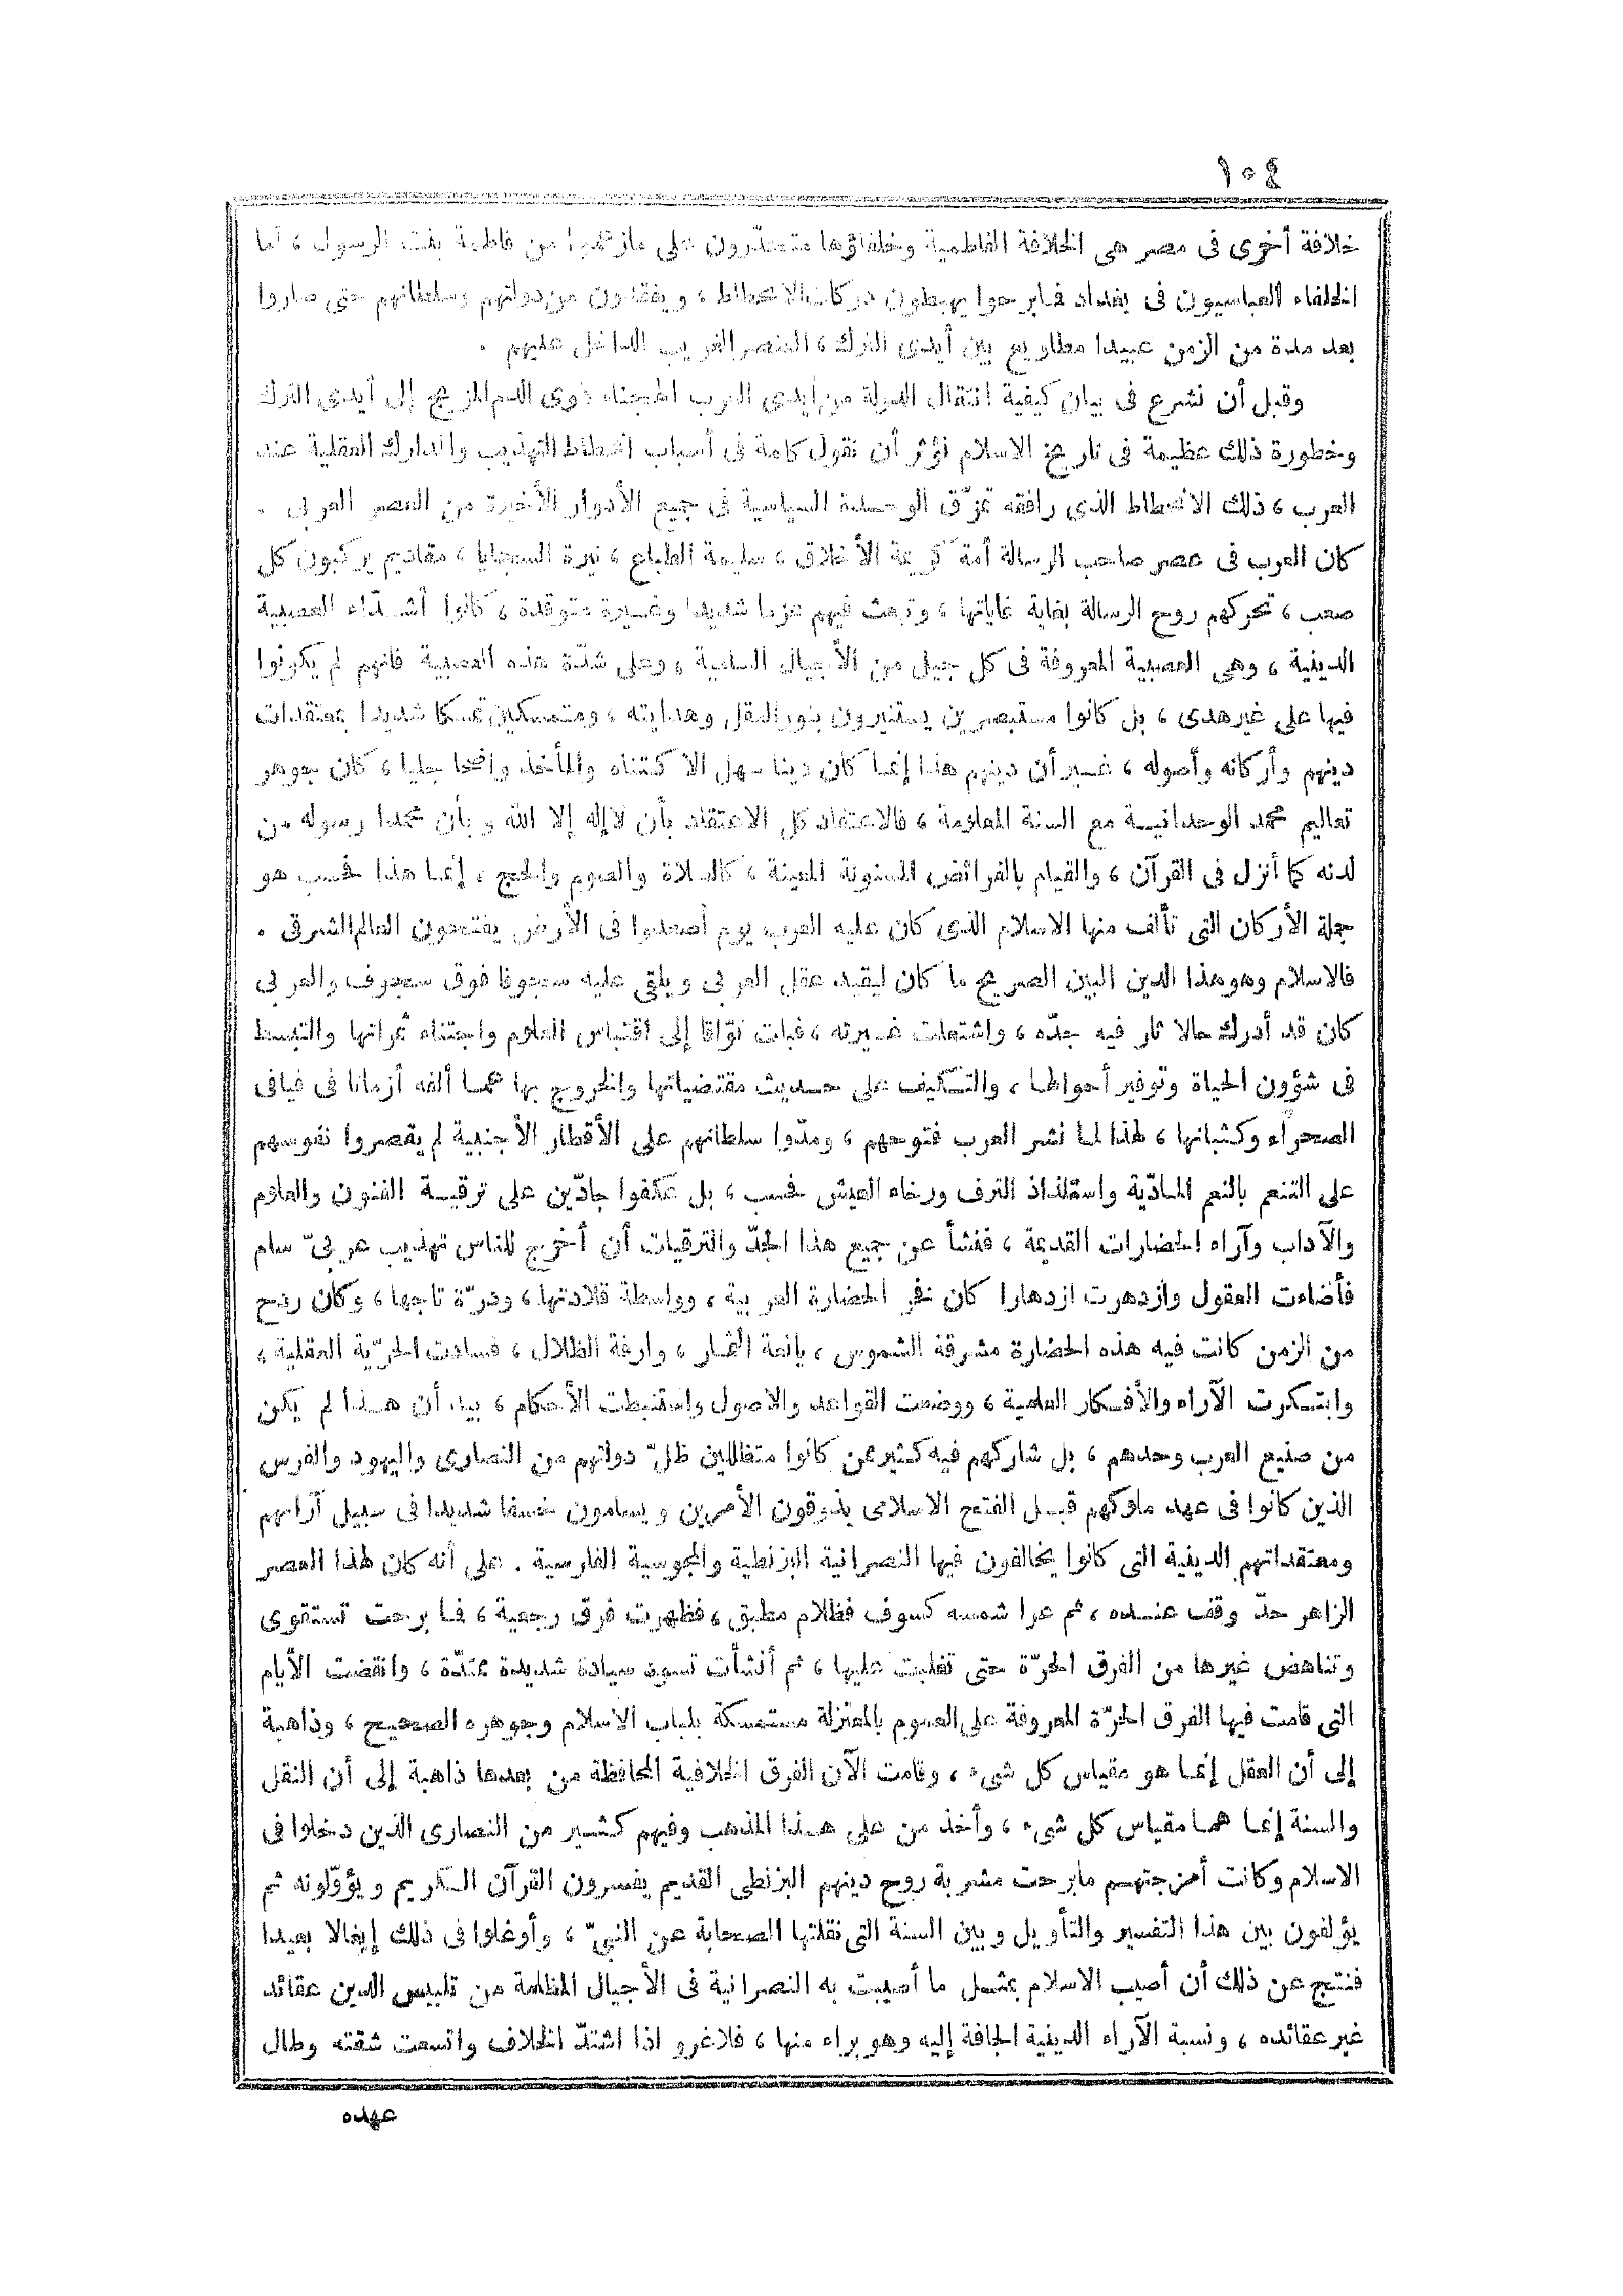 ١٠٤
خلافة أخرى فى مصر هى الخلافة الفاطمية وخلفاؤها متحدّرون على مازعموا من فاطمة بنت الرسول ، أما
الخلفاء العباسيون فى بغداد فما برحوا يهبطون دركات الانحطاط ، ويفقدون من دولتهم وسلطانهم حتى صاروا
بعد مدة من الزمن عبيدا مطاويع بين أيدى الترك ، العنصر الغريب الداخل عليهم .
وقبل أن نشرع فى بيان كيفية انتقال الدولة من أيدى العرب الهجناء ذوى الدم المزيج إلى أيدى الترك
وخطورة ذلك عظيمة فى تاريخ الاسلام نؤثر أن نقول كلمة فى أسباب انحطاط التهذيب والمدارك العقلية عند
العرب ، ذلك الانحطاط الذى رافقه تمزّق الوحدة السياسية فى جميع الأدوار الأخيرة من العصر العربى .
كان العرب فى عصر صاحب الرسالة أمة كريمة الأخلاق ، سليمة الطباع ، نيرة السجايا ، مقاديم يركبون كل
صعب ، تحركهم روح الرسالة بغاية غاياتها ، وتبعث فيهم عزما شديدا وغيرة متوقدة ، كانوا أشدّاء العصبية
الدينية ، وهى العصبية المعروفة فى كل جيل من الأجيال السامية ، وعلى شدّة هذه العصبية فانهم لم يكونوا
فيها على غير هدى ، بل كانوا مستبصرين يستنيرون بنور العقل وهدايته ، ومتمسكين تمسكا شديدا بمعتقدات
دينهم وأركانه وأصوله ، غير أن دينهم هذا إنما كان دينا سهل الاكتناه والمأخذ واضحا جليا ، كان جوهر
تعاليم محمد الوحدانية مع السنة المعلومة ، فالاعتقاد كل الاعتقاد بأن لاإله إلا الله وبأن محمدا رسوله من
لدنه كما أنزل فى القرآن ، والقيام بالفرائض المسنونة المعينة ، كالصلاة والصوم والحج ، إنما هذا فحسب هو
جملة الأركان التى تألف منها الاسلام الذى كان عليه العرب يوم أصعدوا فى الأرض يفتتحون العالم الشرقى .
فالاسلام وهو هذا الدين البين الصريح ما كان ليقيد عقل العربى ويلقى عليه سجوفا فوق سجوف والعربى
كان قد أدرك حالا ثار فيه جدّه ، واشتعلت غيرته ، فبات توّاقا إلى اقتباس العلوم واجتناء ثمراتها والتبسط
فى شؤون الحياة وتوفير أحوالها ، والتكيف على حديث مقتضياتها والخروج بها عما ألفه أزمانا فى فيافى
الصحراء وكثبانها ، لهذا لما نشر العرب فتوحهم ، ومدّوا سلطانهم على الأقطار الأجنبية لم يقصروا نفوسهم
على التنعم بالنعم المادّية واستلذاذ الترف ورخاء العيش فحسب ، بل عكفوا جادّين على ترقية الفنون والعلوم
والآداب وآراء الحضارات القديمة ، فنشأ عن جميع هذا الجدّ والترقيات أن أخرج للناس تهذيب عربىّ سام
فأضاءت العقول وازدهرت ازدهارا كان فخر الحضارة العربية ، وواسطة قلادتها ، ودرّة تاجها ، وكان ردح
من الزمن كانت فيه هذه الحضارة مشرقة الشموس ، يانعة الثمار ، وارفة الظلال ، فسادت الحرّية العقلية ،
وابتكرت الآراء والأفكار العلمية ، ووضعت القواعد والاصول واستنبطت الأحكام ، بيد أن هذا لم يكن
من صنيع العرب وحدهم ، بل شاركهم فيه كثير ممن كانوا متظللين ظلّ دولتهم من النصارى واليهود والفرس
الذين كانوا فى عهد ملوكهم قبل الفتح الاسلامى يذوقون الأمرين ويسامون خسفا شديدا فى سبيل آرائهم
ومعتقداتهم الدينية التى كانوا يخالفون فيها النصرانية البزنطية والمجوسية الفارسية . على أنه كان لهذا العصر
الزاهر حدّ وقف عنده ، ثم عرا شمسه كسوف فظلام مطبق ، فظهرت فرق رجعية ، فما برحت تستقوى
وتناهض غيرها من الفرق الحرّة حتى تغلبت عليها ، ثم أنشأت تسود سيادة شديدة ممتدّة ، وانقضت الأيام
التى قامت فيها الفرق الحرّة المعروفة على العموم بالمعتزلة مستمسكة بلباب الاسلام وجوهره الصحيح ، وذاهبة
إلى أن العقل إنما هو مقياس كل شىء ، وقامت الآن الفرق الخلافية المحافظة من بعدها ذاهبة إلى أن النقل
والسنة إنما هما مقياس كل شىء ، وأخذ من على هذا المذهب وفيهم كثير من النصارى الذين دخلوا فى
الاسلام وكانت أمزجتهم مابرحت مشربة روح دينهم البزنطى القديم يفسرون القرآن الكريم ويؤوّلونه ثم
يؤلفون بين هذا التفسير والتأويل وبين السنة التى نقلتها الصحابة عن النبىّ ، وأوغلوا فى ذلك إيغالا بعيدا
فنتج عن ذلك أن أصيب الاسلام بمثل ما أصيبت به النصرانية فى الأجيال المظلمة من تلبيس الدين عقائد
غير عقائده ، ونسبة الآراء الدينية الجافة إليه وهو براء منها ، فلاغرو اذا اشتدّ الخلاف واتسعت شقته وطال
عهده